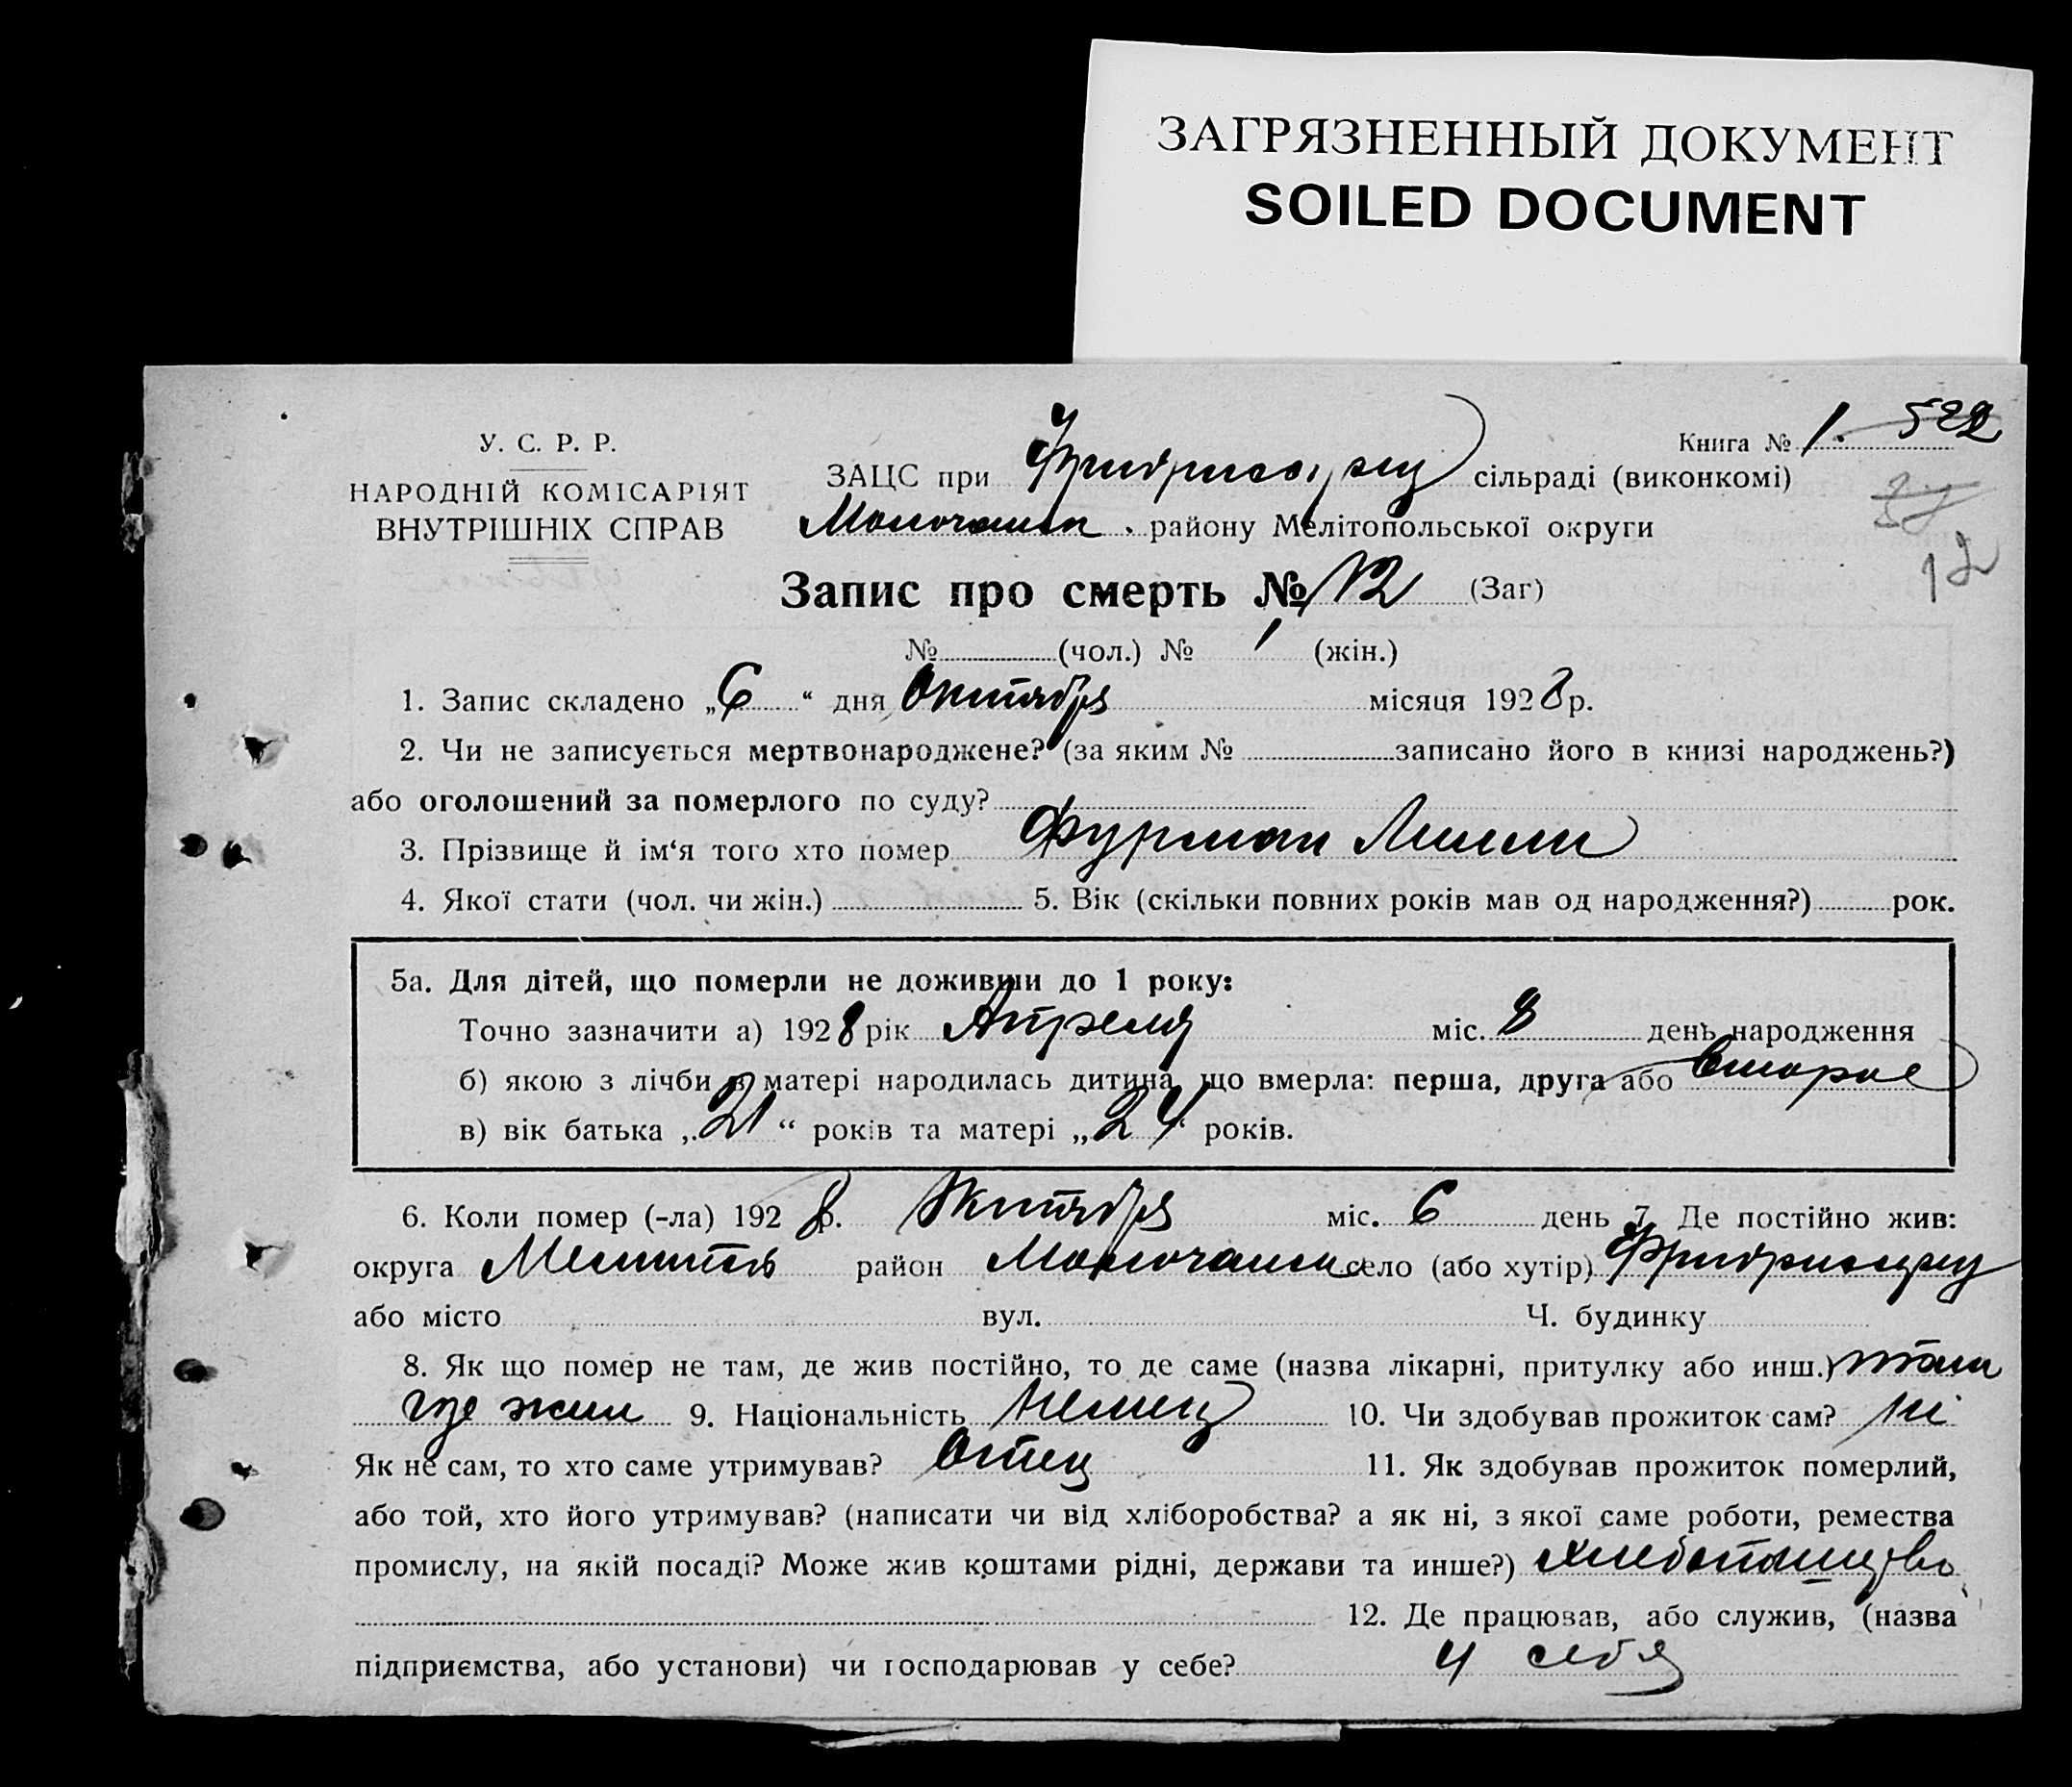 ЗАГРЯЗНЕННЫЙ ДОКУМЕНТ
SOILED DOCUMENT
У. С. Р. Р.
НАРОДНІЙ КОМІСАРІЯТ
ВНУТРІШНІХ СПРАВ
Книга № 1. 522
ЗАЦС при сільраді (виконкомі)
Молочанск. району Мелітопольської округи
12
Запис про смерть № 12 (Заг)
№ (чол.) № 1 (жін.)
1. Запис складено „6“ дня Октября місяця 1928 р.
2. Чи не записується мертвонароджене? (за яким № записано його в книзі народжень?)
або оголошений за померлого по суду?
3. Прізвище й ім‘я того хто помер Фурман Лилли
4. Якої стати (чол. чи жін.) 5. Вік (скільки повних років мав од народження?) рок.
5а. Для дітей, що померли не доживши до 1 року:
Точно зазначити а) 1928 рік Апреля міс. 8 день народження
б) якою з лічби в матері народилась дитина, що вмерла: перша, друга або второе
в) вік батька „21“ років та матері „24“ років.
6. Коли помер (-ла) 1928 р. Октября міс. 6 день 7. Де постійно жив:
округа Мелитоп район Молочанск село (або хутір)
або місто вул. Ч. будинку
8. Як що помер не там, де жив постійно, то де саме (назва лікарні, притулку або инш.) там
где жил 9. Національність Немец 10. Чи здобував прожиток сам? Ні
Як не сам, то хто саме утримував? Отец 11. Як здобував прожиток померлий,
або той, хто його утримував? (написати чи від хліборобства? а як ні, з якої саме роботи, ремества
промислу, на якій посаді? Може жив коштами рідні, держави та инше?) хлебопашество
12. Де працював, або служив, (назва
підприємства, або установи) чи господарював у себе? у себя